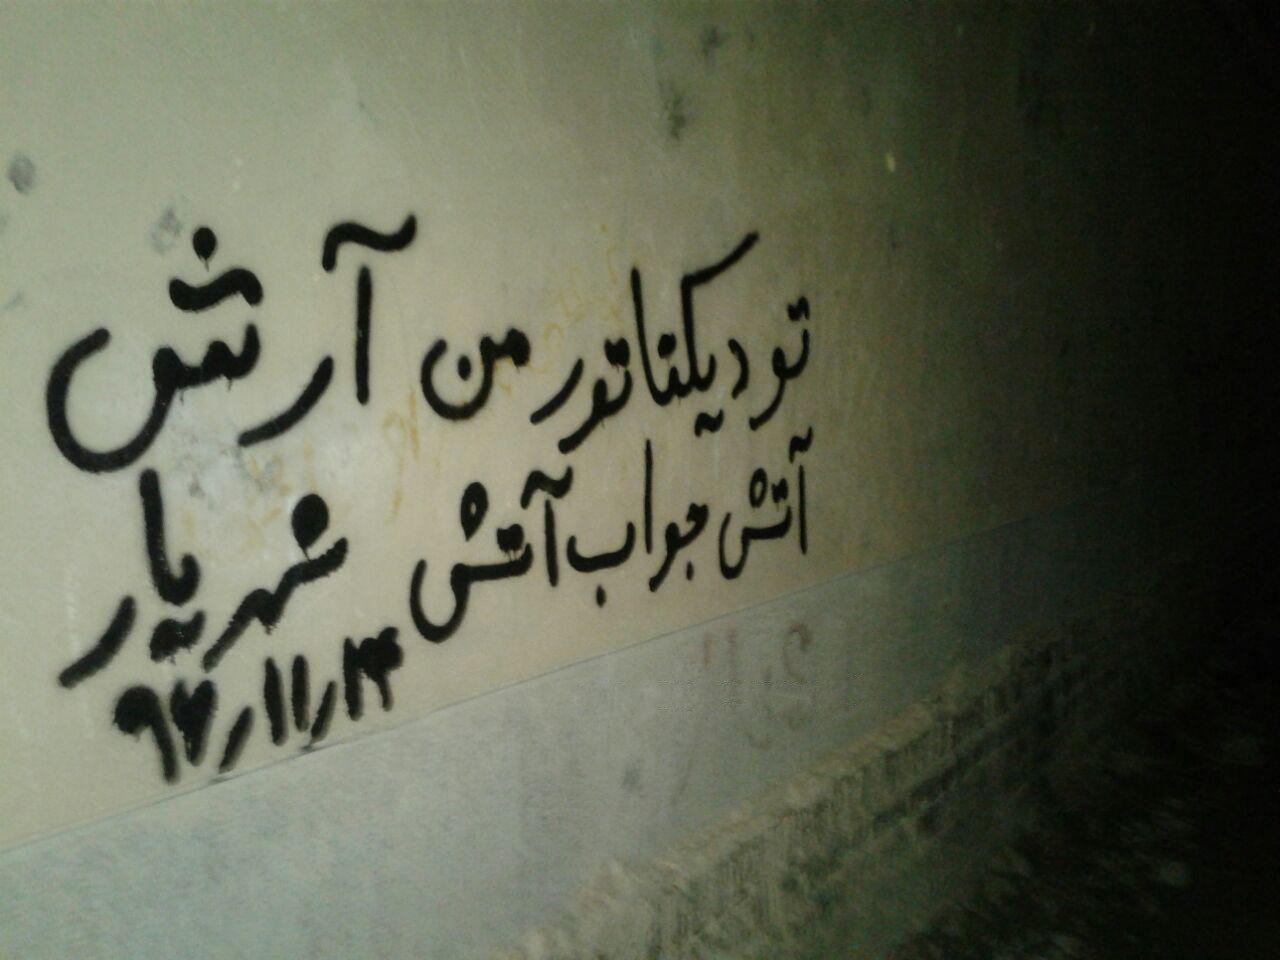 تو دیکتاتور من آرش
آتش جواب آتش شهریار
۹۷ر۱۱ر۱۴